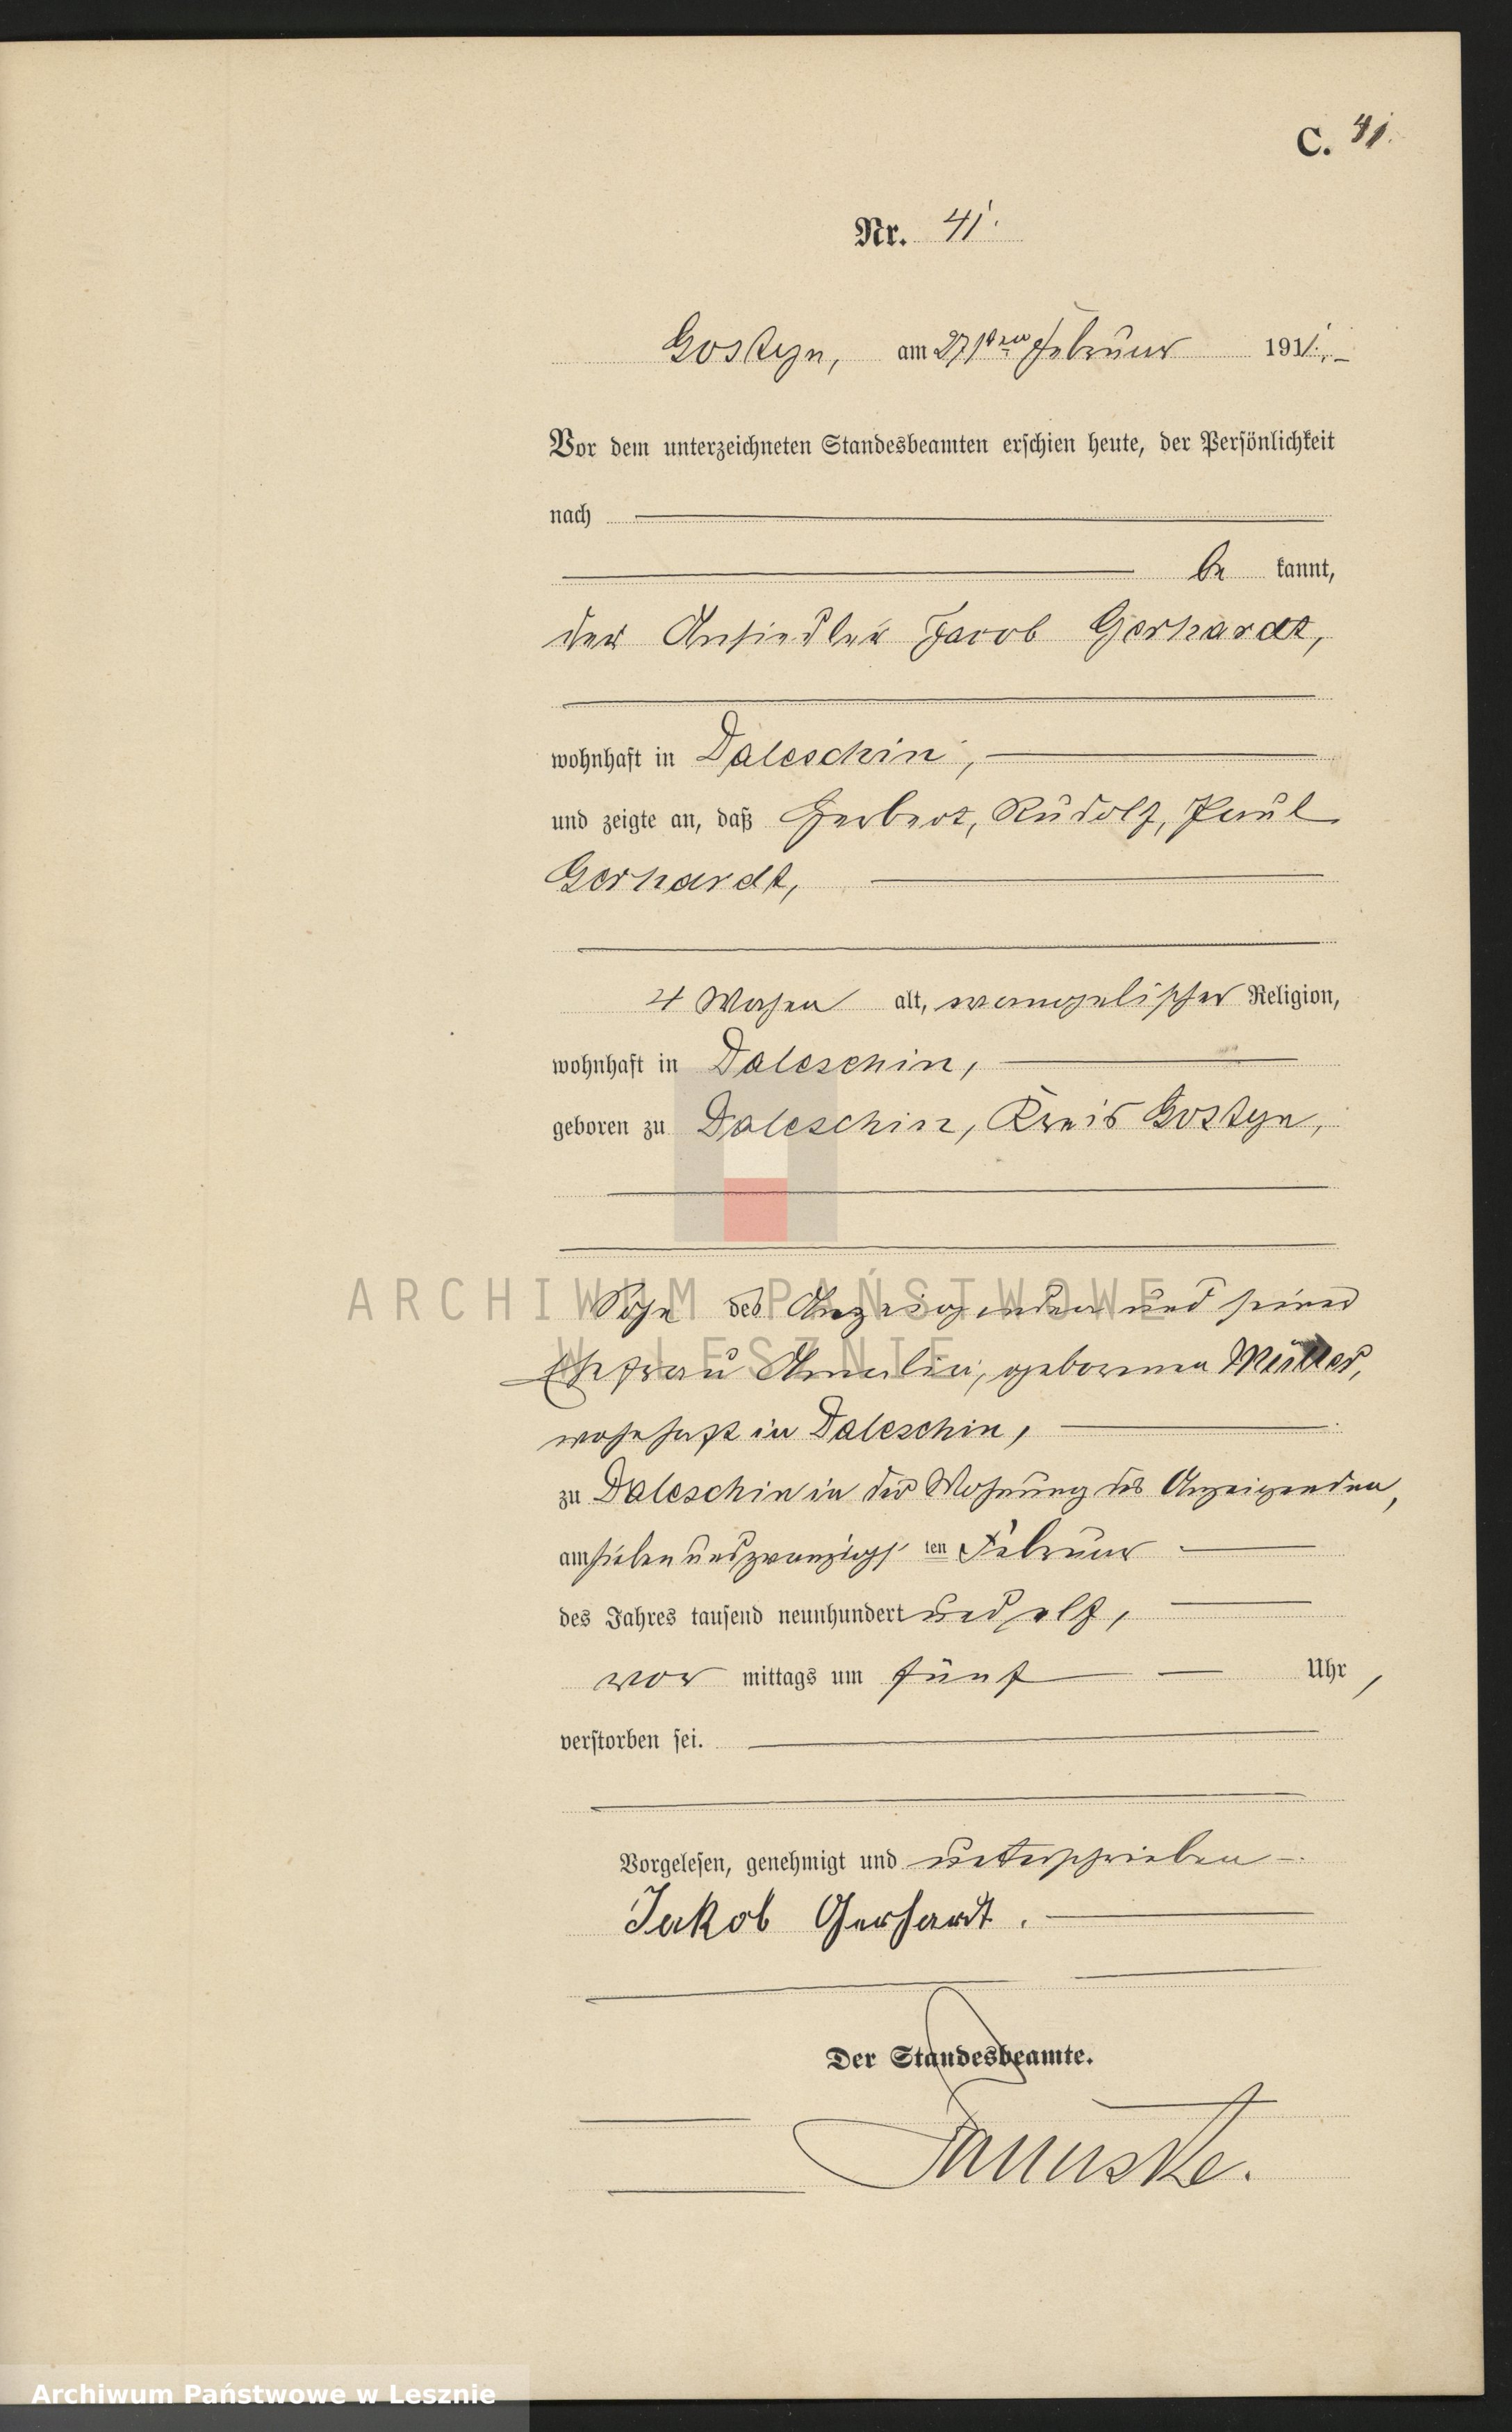 C. 41.
Nr. 41.
Gostyn, am 27sten Februar 1911.
Vor dem unterzeichneten Standesbeamten erschien heute, der Persönlichkeit
nach
be kannt,
der Ansiedler Jacob Gerhardt,
wohnhaft in Daleschin,
und zeigte an, daß Herbert, Rudolf, Paul
Gerhardt,
4 Wochen alt, evangelischer Religion,
wohnhaft in Daleschin,
geboren zu Daleschin, Kreis Gostyn,
ARCHIWUM PAŃSTWOWE
W LESZNIE
Sohn des Anzeigenden und seiner
Ehefrau Amalie, geborenen Müller,
wohnhaft in Daleschin,
zu Daleschin in der Wohnung des Anzeigenden,
am siebenundzwanzigsten Februar
des Jahres tausend neunhundert und elf,
vor mittags um fünf Uhr,
verstorben sei.
Vorgelesen, genehmigt und unterschrieben
Jakob Gerhardt.
Der Standesbeamte.
Archiwum Państwowe w Lesznie